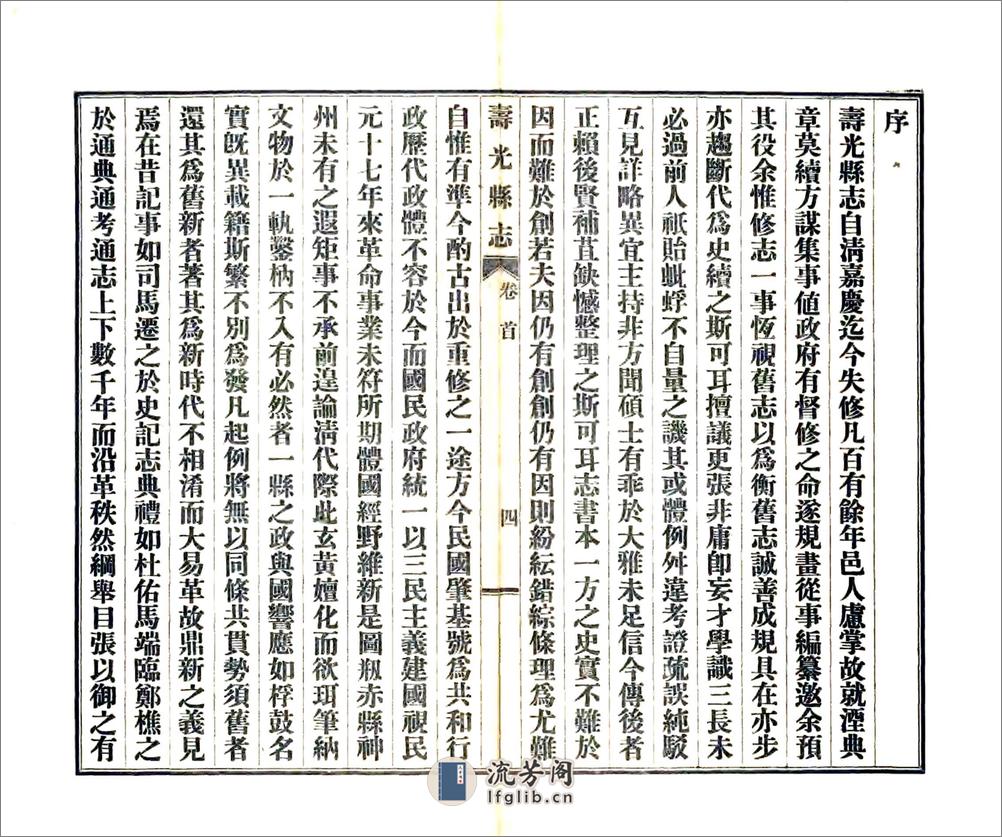 序
壽光縣志自清嘉慶迄今失修凡百有餘年邑人慮掌故就湮典
章莫續方謀集事値政府有督修之命遂規畫從事編纂邀余預
其役余惟修志一事恆視舊志以爲衡舊志誠善成規具在亦步
亦趨斷代爲史續之斯可耳擅議更張非庸卽妄才學識三長未
必過前人祇貽蚍蜉不自量之譏其或體例舛違考證疏誤純駁
互見詳略異宜主持非方聞碩士有乖於大雅未足信今傳後者
正賴後賢補苴缺憾整理之斯可耳志書本一方之史實不難於
因而難於創若夫因仍有創創仍有因則紛紜錯綜條理爲尤難
壽光縣志
卷首
四
自惟有準今酌古出於重修之一途方今民國肇基號爲共和行
政歷代政體不容於今而國民政府統一以三民主義建國視民
元十七年來革命事業未符所期體國經野維新是圖剏赤縣神
州未有之遐矩事不承前遑論淸代際此玄黃嬗化而欲珥筆納
文物於一軌鑿枘不入有必然者一縣之政與國響應如桴鼓名
實旣異載籍斯繁不別爲發凡起例將無以同條共貫勢須舊者
還其爲舊新者著其爲新時代不相淆而大易革故鼎新之義見
焉在昔記事如司馬遷之於史記志典禮如杜佑馬端臨鄭樵之
於通典通考通志上下數千年而沿革秩然綱舉目張以御之有
流芳阁
lfglib.cn